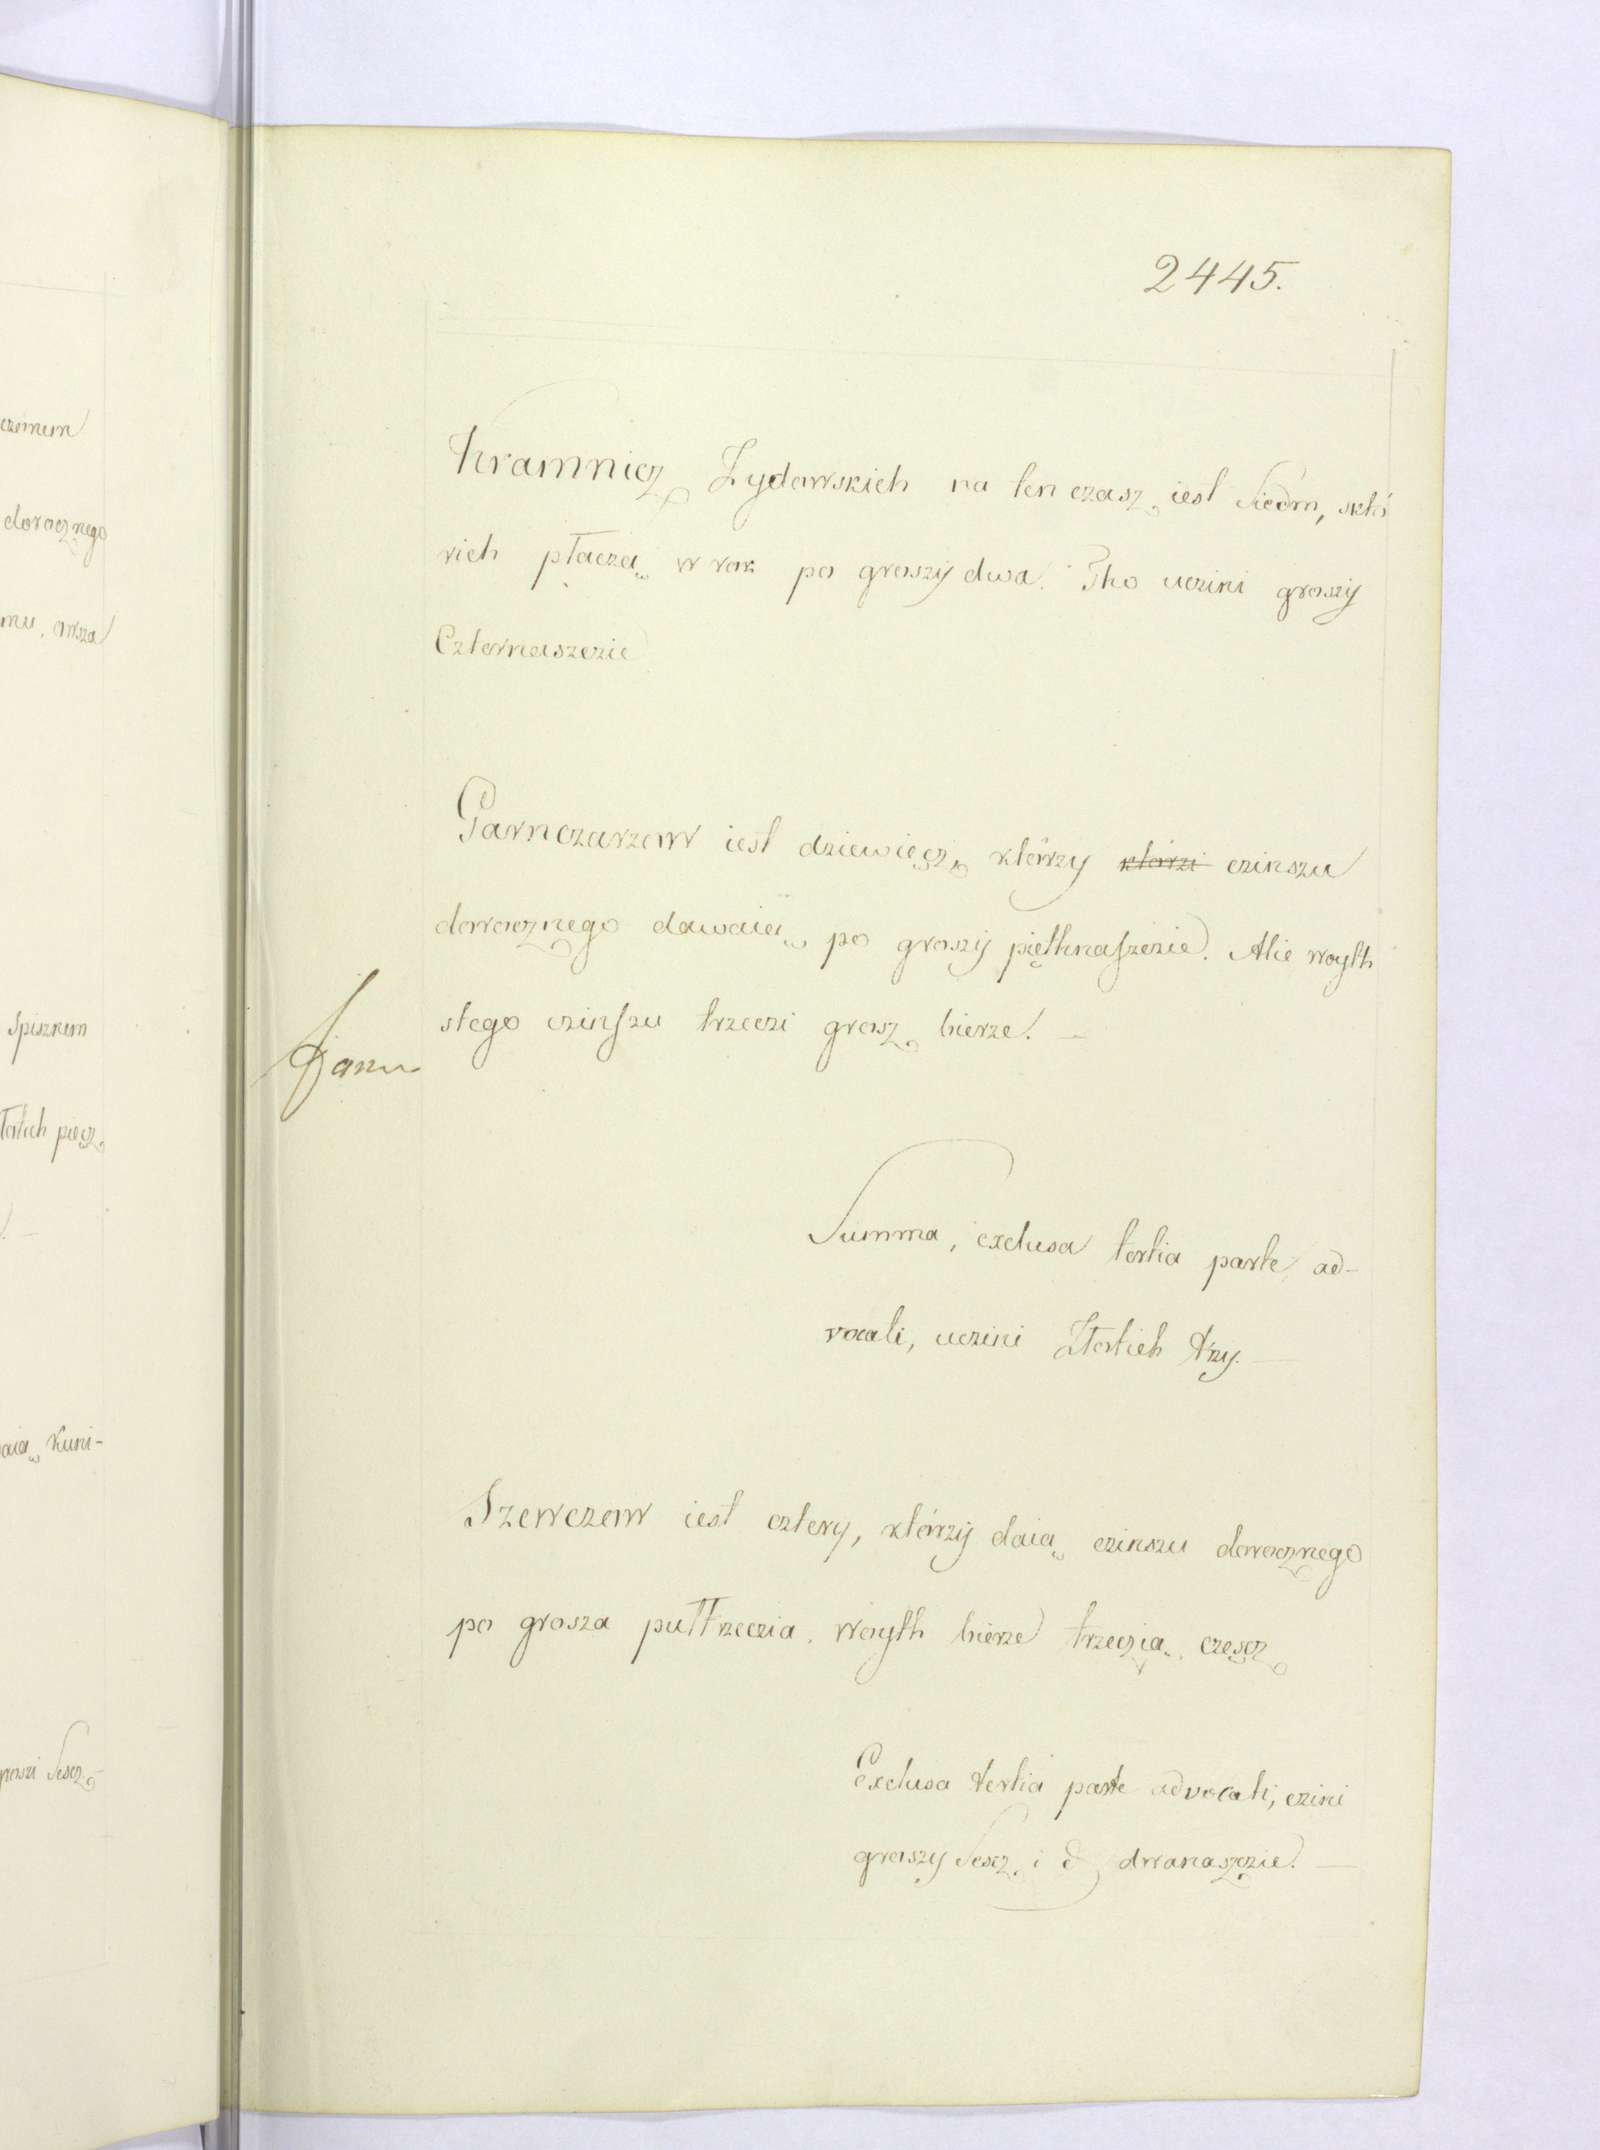 2445.
Kramnicz Zydowskich na ten czasz iest Siedm, sktó
rich płaczą w rok po groszy dwa. Tho uczini groszy
Czternaszczie
Garnczarzow iest dziewięcz, którzy którzi czinszu
dorocznego dawaią po groszy pięthnaszczie. Alie woyth
stego czinszu trzeczi grosz bierze. —
Summa, exclusa tertia parte ad-
vocati, uczini Złotich trzy. —
Szewczow iest cztery, którzy daią czinszu dorocznego
po grosza pułtrzeczia. woyth bierze trzeczią częscz
Exclusa tertia parte advocati, czini
groszy Sescz i d dwanaszczie. —
czinszem
dorocznego
mu, owsza
Spisznem
złotich pięcz
aią Kuni-
groszi Sescz